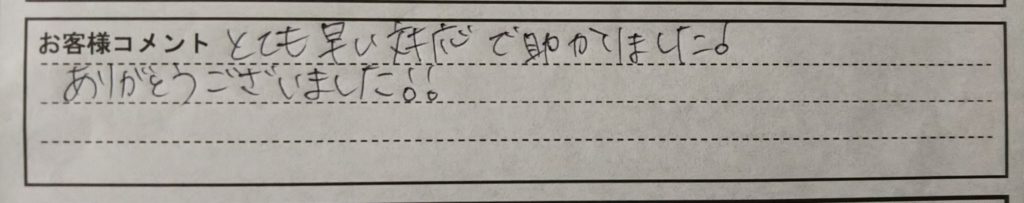 お客様コメント とても早い対応で助かてしました!
ありがとうございました!!